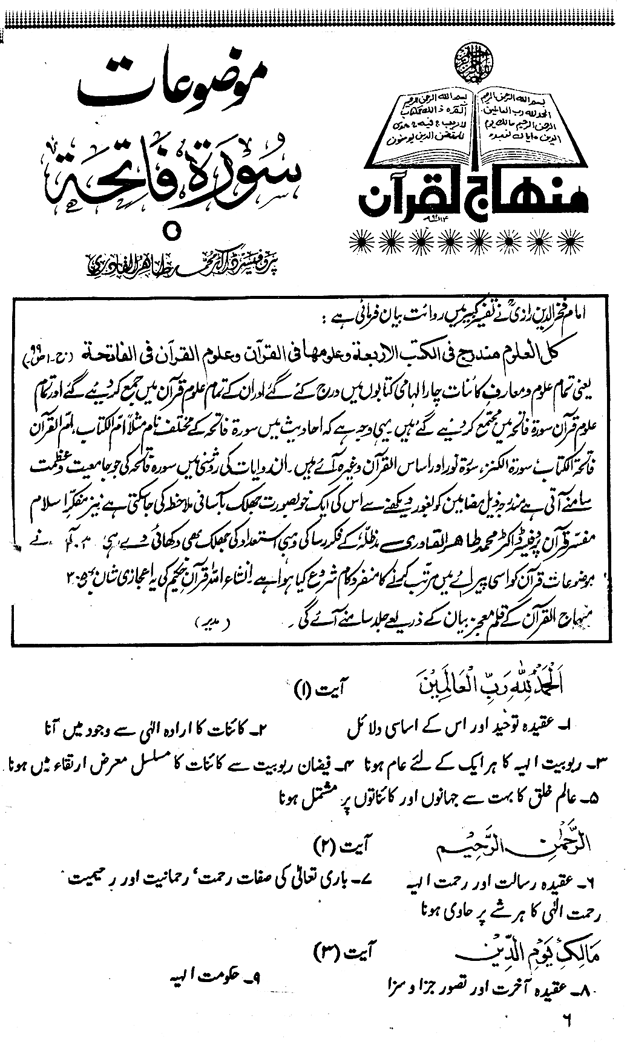 موضوعات
سورۃ فاتحہ
پروفیسر ڈاکٹر محمد طاہر القادری
بسم الله الرحمن الرحيم
الحمد لله رب العالمين
الرحمن الرحيم مالك يوم
الدين اياك نعبد و
بسم الله الرحمن الرحيم
منهاج القرآن
امام فخر الدین رازیؒ نے تفسیر کبیر میں روائت بیان فرمائی ہے :
کل العلوم مندرج فی الکتب الاربعة وعلومها فی القرآن وعلوم القرآن فی الفاتحة (ج-۱ص۹۹)
یعنی تمام علوم و معارف کائنات چار الہامی کتابوں میں درج کئے گئے اور ان کے تمام علوم قرآن میں جمع کر دیئے گئے اور تمام
علوم قرآن سورۃ فاتحہ میں مجتمع کر دیئے گئے ہیں۔ یہی وجہ ہے کہ احادیث میں سورۃ فاتحہ کے مختلف نام مثلاً ام الکتاب، ام القرآن
فاتحۃ الکتاب، سورۃ الکنز، سورۃ نور اور اساس القرآن وغیرہ آئے ہیں۔ ان روایات کی روشنی میں سورۃ فاتحہ کی جو جامعیت و عظمت
سامنے آتی ہے مندرجہ ذیل مضامین کو بغور دیکھنے سے اس کی ایک خوبصورت جھلک بآسانی ملاحظہ کی جا سکتی ہے نیز مفکر اسلام
مفسر قرآن پروفیسر ڈاکٹر محمد طاہر القادری مدظلہٗ کے فکر رسا کی ذہنی استعداد کی جھلک بھی دکھائی دے نے
موضوعات قرآن کو اسی پیرائے میں مرتب کرنے کا منفرد کام شروع کیا ہوا ہے انشاء اللہ قرآن حکیم کی یہ اعجازی شان
منہاج القرآن کے قلم معجز بیان کے ذریعے جلد سامنے آئے گی۔ (مدیر)
اَلْحَمْدُ لِلّٰهِ رَبِّ الْعَالَمِيْنَ آیت (۱)
۱۔ عقیدہ توحید اور اس کے اساسی دلائل ۲۔ کائنات کا ارادہ الٰہی سے وجود میں آنا
۳۔ ربوبیت الہیہ کا ہر ایک کے لئے عام ہونا ۴۔ فیضان ربوبیت سے کائنات کا مسلسل معرض ارتقاء میں ہونا
۵۔ عالم خلق کا بہت سے جہانوں اور کائناتوں پر مشتمل ہونا
الرَّحْمٰنِ الرَّحِيْمِ آیت (۲)
۶۔ عقیدہ رسالت اور رحمت الہیہ ۷۔ باری تعالیٰ کی صفات رحمت، رحمانیت اور رحیمیت
رحمت الٰہی کا ہر شے پر حاوی ہونا
مَالِكِ يَوْمِ الدِّيْنِ آیت (۳)
۸۔ عقیدہ آخرت اور تصور جزا و سزا ۹۔ حکومت الہیہ
۶